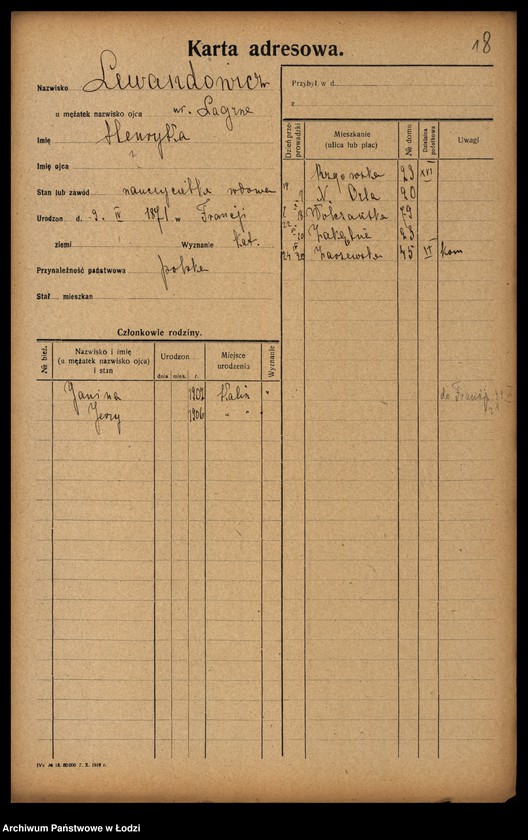 Karta adresowa.
18
Nazwisko Lewandowicz
u mężatek nazwisko ojca ur. Lagrne
Imię Henryka
Imię ojca
Stan lub zawód nauczycielka wdowa
Urodzon d. 9. IV 1871 w Francji
ziemi Wyznanie kat.
Przynależność państwowa polska
Stał mieszkan
Przybył w d.
z
Dzień przeprowadzki
Mieszkanie (ulica lub plac)
№ domu
Dzielnica podatkowa
Uwagi
Rzgowska 23 XVI
N. Orla 20
Wólczańska 79
Zakątna 23
Zarzewska 45 VI kom
Członkowie rodziny.
№ bież.
Nazwisko i imię
(u mężatek nazwisko ojca)
i stan
Urodzon
dnia mies. r.
Miejsce urodzenia
Wyznanie
Janina 1907 Kalis "
Jerzy 1906 " "
do Francji
IVc № 18. 80 000 7. X. 1918 r.
Archiwum Państwowe w Łodzi